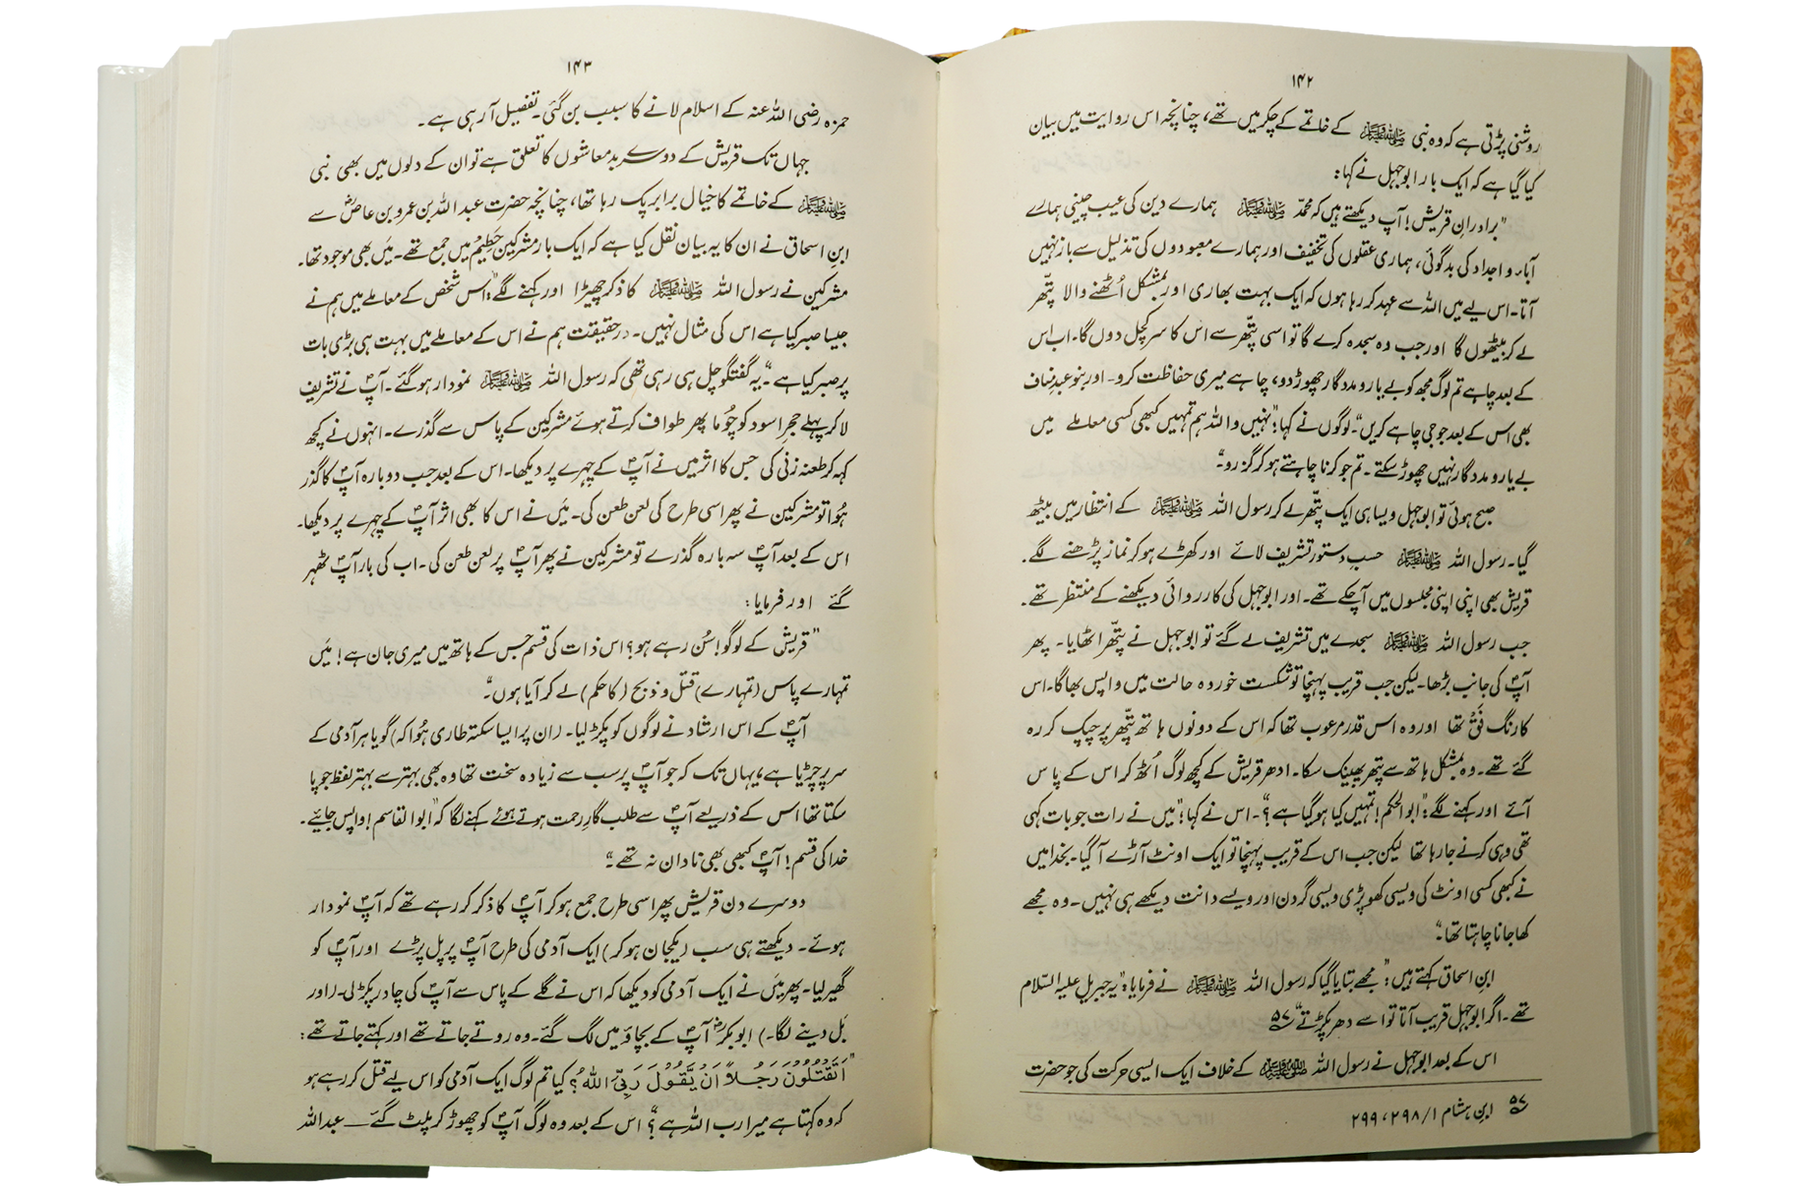 ۱۴۲
روشنی پڑتی ہے کہ وہ نبی ﷺ کے خاتمے کے چکر میں تھے، چنانچہ اس روایت میں بیان
کیا گیا ہے کہ ایک بار ابوجہل نے کہا:
"برادرانِ قریش! آپ دیکھتے ہیں کہ محمدؐ ﷺ ہمارے دین کی عیب چینی ہمارے
آباء و اجداد کی بدگوئی، ہماری عقلوں کی تخفیف اور ہمارے معبودوں کی تذلیل سے باز نہیں
آتا۔ اس لیے میں اللہ سے عہد کر رہا ہوں کہ ایک بہت بھاری اور بمشکل اُٹھنے والا پتّھر
لے کر بیٹھوں گا اور جب وہ سجدہ کرے گا تو اسی پتّھر سے اس کا سر کچل دوں گا۔ اب اس
کے بعد چاہے تم لوگ مجھ کو بے یار و مددگار چھوڑ دو، چاہے میری حفاظت کرو۔ اور بنو عبدِ مناف
بھی اس کے بعد جو جی چاہے کریں"۔ لوگوں نے کہا: "نہیں واللہ ہم تمہیں کبھی کسی معاملے میں
بے یار و مددگار نہیں چھوڑ سکتے۔ تم جو کرنا چاہتے ہو کر گزرو"۔
صبح ہوئی تو ابوجہل ویسا ہی ایک پتّھر لے کر رسول اللہ ﷺ کے انتظار میں بیٹھ
گیا۔ رسول اللہ ﷺ حسبِ دستور تشریف لائے اور کھڑے ہو کر نماز پڑھنے لگے۔
قریش بھی اپنی اپنی مجلسوں میں آ چکے تھے۔ اور ابوجہل کی کارروائی دیکھنے کے منتظر تھے۔
جب رسول اللہ ﷺ سجدے میں تشریف لے گئے تو ابوجہل نے پتّھر اٹھایا۔ پھر
آپؐ کی جانب بڑھا۔ لیکن جب قریب پہنچا تو شکست خوردہ حالت میں واپس بھاگا۔ اس
کا رنگ فَق تھا اور وہ اس قدر مرعوب تھا کہ اس کے دونوں ہاتھ پتّھر پر چپک کر رہ
گئے تھے۔ وہ بمشکل ہاتھ سے پتھر پھینک سکا۔ ادھر قریش کے کچھ لوگ اُٹھ کر اس کے پاس
آئے اور کہنے لگے: "ابوالحکم! تمہیں کیا ہو گیا ہے؟"۔ اس نے کہا: "میں نے رات جو بات کہی
تھی وہی کرنے جا رہا تھا لیکن جب اس کے قریب پہنچا تو ایک اونٹ آڑے آ گیا۔ بخدا میں
نے کبھی کسی اونٹ کی ویسی کھوپڑی ویسی گردن اور ویسے دانت دیکھے ہی نہیں۔ وہ مجھے
کھا جانا چاہتا تھا"۔
ابنِ اسحاق کہتے ہیں: "مجھے بتایا گیا کہ رسول اللہ ﷺ نے فرمایا: "یہ جبریل علیہ السّلام
تھے۔ اگر ابوجہل قریب آتا تو اسے دھر پکڑتے" ۵۷
اس کے بعد ابوجہل نے رسول اللہ ﷺ کے خلاف ایک ایسی حرکت کی جو حضرت
۵۷ ابنِ ہشام ۱/ ۲۹۸، ۲۹۹
۱۴۳
حمزہ رضی اللہ عنہ کے اسلام لانے کا سبب بن گئی۔ تفصیل آ رہی ہے۔
جہاں تک قریش کے دوسرے بدمعاشوں کا تعلق ہے تو ان کے دلوں میں بھی نبی
ﷺ کے خاتمے کا خیال برابر پک رہا تھا، چنانچہ حضرت عبداللہ بن عمرو بن عاصؓ سے
ابنِ اسحاق نے ان کا یہ بیان نقل کیا ہے کہ ایک بار مشرکین حَطِیمْ میں جمع تھے۔ میں بھی موجود تھا۔
مشرکین نے رسول اللہ ﷺ کا ذکر چھیڑا اور کہنے لگے: "اس شخص کے معاملے میں ہم نے
جیسا صبر کیا ہے اس کی مثال نہیں۔ درحقیقت ہم نے اس کے معاملے میں بہت ہی بڑی بات
پر صبر کیا ہے"۔ یہ گفتگو چل ہی رہی تھی کہ رسول اللہ ﷺ نمودار ہو گئے۔ آپؐ نے تشریف
لا کر پہلے حجرِ اسود کو چُوما پھر طواف کرتے ہوئے مشرکین کے پاس سے گذرے۔ انہوں نے کچھ
کہہ کر طعنہ زنی کی جس کا اثر میں نے آپؐ کے چہرے پر دیکھا۔ اس کے بعد جب دوبارہ آپؐ کا گذر
ہُوا تو مشرکین نے پھر اسی طرح کی لعن طعن کی۔ میَں نے اس کا بھی اثر آپؐ کے چہرے پر دیکھا۔
اس کے بعد آپؐ سہ بارہ گذرے تو مشرکین نے پھر آپؐ پر لعن طعن کی۔ اب کی بار آپؐ ٹھہر
گئے اور فرمایا:
"قریش کے لوگو! سُن رہے ہو؟ اس ذات کی قسم جس کے ہاتھ میں میری جان ہے! میَں
تمہارے پاس (تمہارے) قتل و ذبح (کا حکم) لے کر آیا ہوں"۔
آپؐ کے اس ارشاد نے لوگوں کو پکڑ لیا۔ (ان پر ایسا سکتہ طاری ہُوا کہ) گویا ہر آدمی کے
سر پر چڑیا ہے، یہاں تک کہ جو آپؐ پر سب سے زیادہ سخت تھا وہ بھی بہتر سے بہتر لفظ جو پا
سکتا تھا اس کے ذریعے آپؐ سے طلب گارِ رحمت ہوتے ہوئے کہنے لگا کہ "ابوالقاسم! واپس جائیے۔
خدا کی قسم! آپؐ کبھی بھی نادان نہ تھے"۔
دوسرے دن قریش پھر اسی طرح جمع ہو کر آپؐ کا ذکر کر رہے تھے کہ آپؐ نمودار
ہوئے۔ دیکھتے ہی سب (یکجان ہو کر) ایک آدمی کی طرح آپؐ پر پل پڑے اور آپؐ کو
گھیر لیا۔ پھر میَں نے ایک آدمی کو دیکھا کہ اس نے گلے کے پاس سے آپؐ کی چادر پکڑ لی۔ (اور
بَل دینے لگا۔) ابوبکرؓ آپؐ کے بچاؤ میں لگ گئے۔ وہ روتے جاتے تھے اور کہتے جاتے تھے:
"اَتَقْتُلُوْنَ رَجُلاً اَنْ يَّقُوْلَ رَبِّيَ اللهُ؟ کیا تم لوگ ایک آدمی کو اس لیے قتل کر رہے ہو
کہ وہ کہتا ہے میرا رب اللہ ہے؟" اس کے بعد وہ لوگ آپؐ کو چھوڑ کر پلٹ گئے — عبداللہ